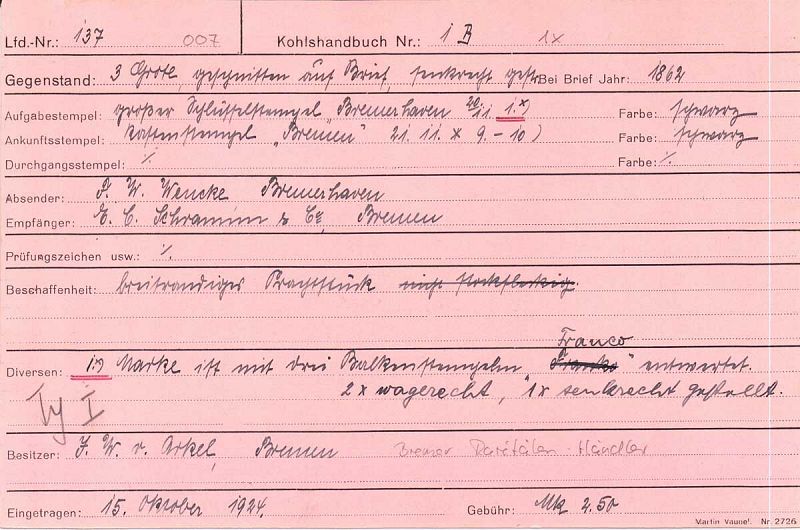 Lfd.-Nr.: 137 007 Kohlshandbuch Nr.: 1 B 1x
Gegenstand: 3 Grote, geschnitten auf Brief, senkrecht gestr. Bei Brief Jahr: 1862
Aufgabestempel: großer Schlüsselstempel „Bremerhaven 20/11 1.x) Farbe: schwarz
Ankunftsstempel: Kastenstempel „Bremen" 21. 11. x 9. – 10) Farbe: schwarz
Durchgangsstempel: ·/. Farbe: ·/.
Absender: F. W. Wencke Bremerhaven
Empfänger: E. C. Schramm & Co Bremen
Prüfungszeichen usw.: ·/.
Beschaffenheit: breitrandiges Prachtstück nicht stockfleckig.
Franco
Diversen: 1.x) Marke ist mit drei Balkenstempeln „Franko" entwertet.
2 x wagerecht, 1 x senkrecht gestellt.
Ty I
Besitzer: J. W. v. Arkel, Bremen Bremer Raritäten-Händler
Eingetragen: 15. Oktober 1924. Gebühr: Mk 2.50
Nr. 2726